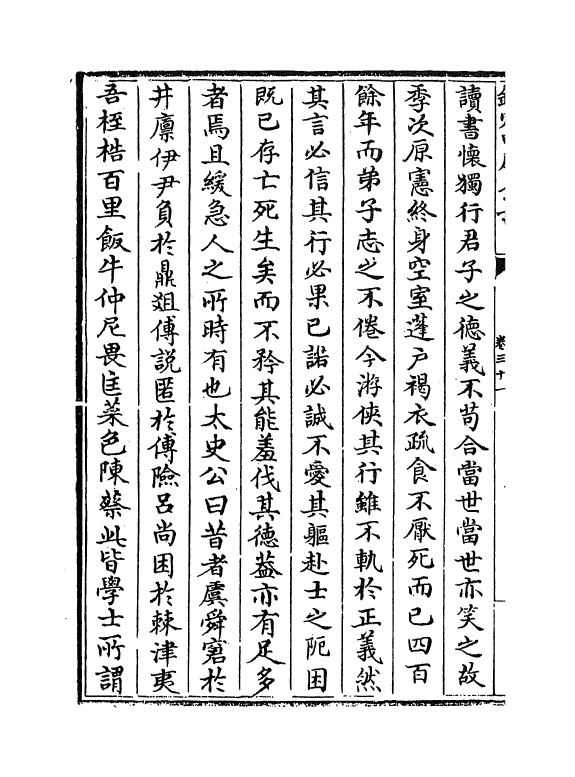 卷三十一
讀書懷獨行君子之德義不茍合當世當世亦笑之故
季次原憲終身空室蓬戶褐衣疏食不厭死而已四百
餘年而弟子志之不倦今游俠其行雖不軌於正義然
其言必信其行必果已諾必誠不愛其軀赴士之阨困
既已存亡死生矣而不矜其能羞伐其德葢亦有足多
者焉且緩急人之所時有也太史公曰昔者虞舜窘於
井廩伊尹負於鼎俎傅說匿於傅險呂尚困於棘津夷
吾桎梏百里飯牛仲尼畏匡菜色陳蔡此皆學士所謂